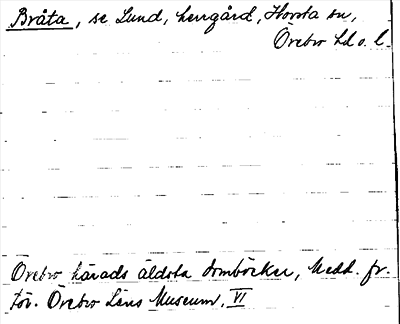 Bråta, se Lund, herrgård, Hovsta sn,
Örebro hd o. l.
Örebro härads äldsta domböcker, Medd. fr.
För. Örebro Läns Museum, VI